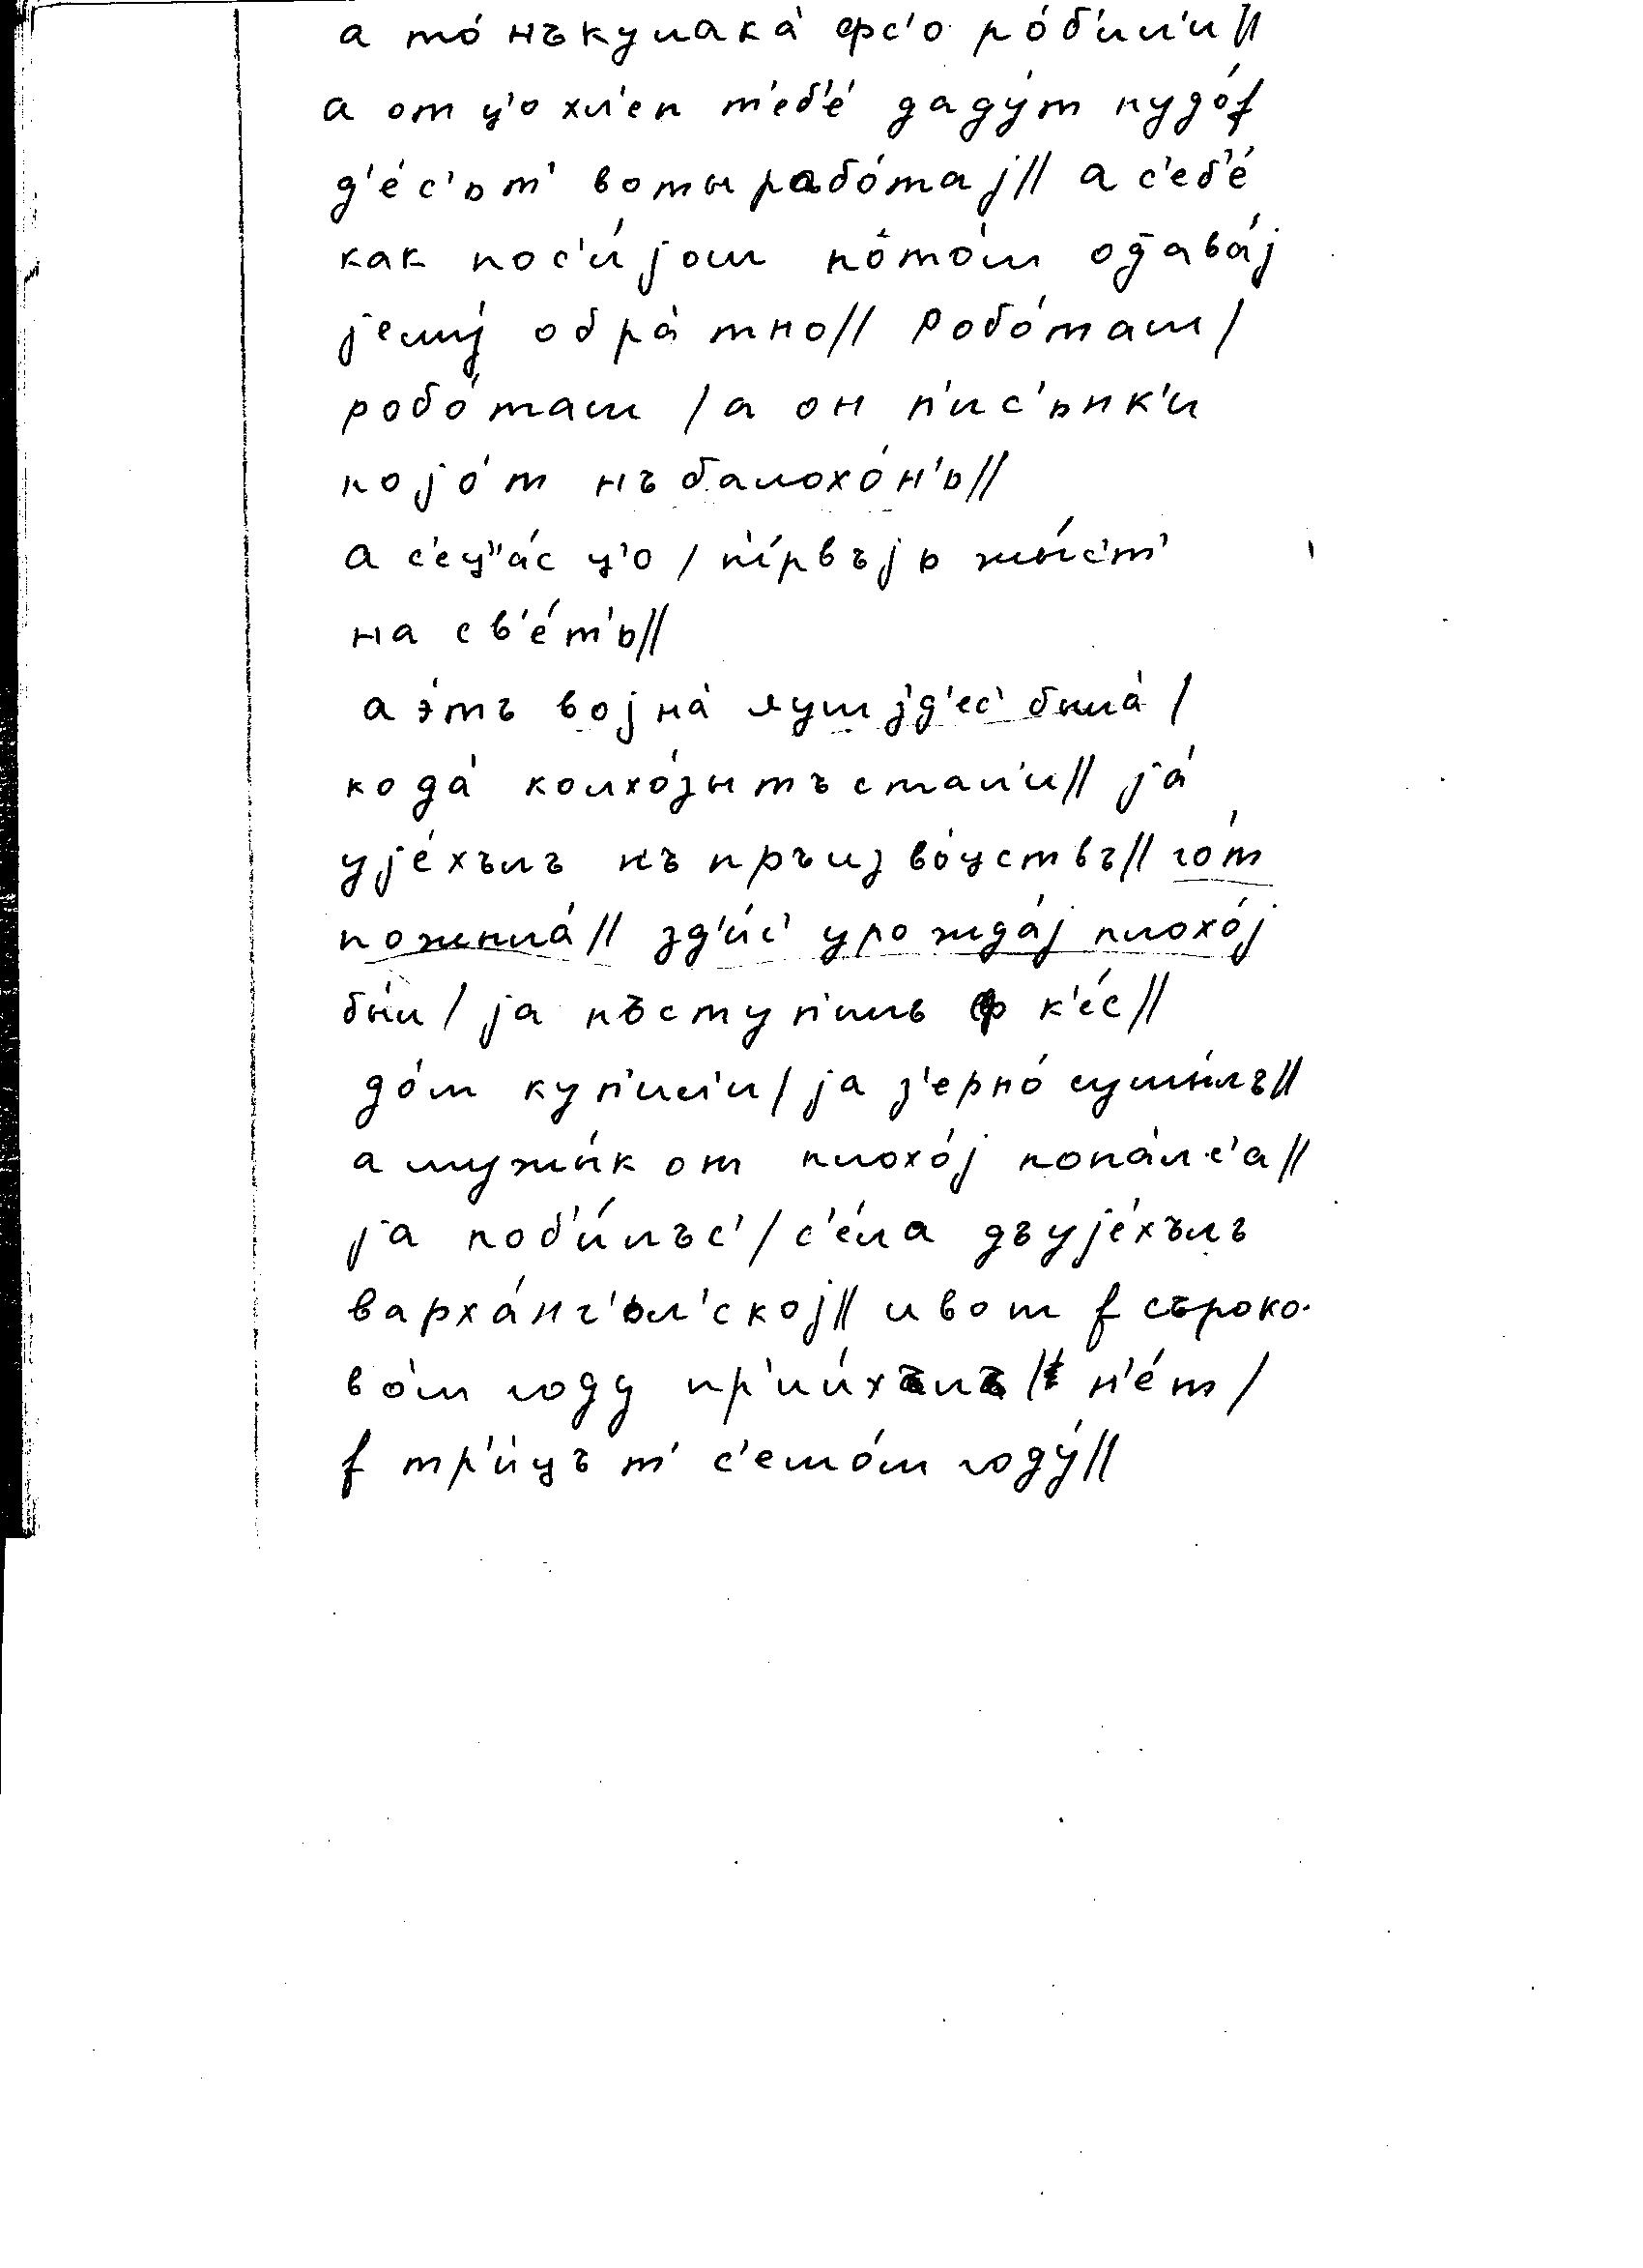 а то́ нъкулака́ фс'о ро́б'ил'и//
а от ц'о хл'еп т'еб'е́ даду́т пудо́f
д'е́с'ьт' воты рабо́тај// а с'еб'е́
как пос'и́још пôто́м од̄ава́ј
јему́ обра́тно// робо́таш/
робо́таш /а он п'ис'ьнк'и
појо́т нъ балохо́н'ь//
а с'ец"а́с ц'о / п'и́рвъјь жы́с'т'
на св'е́т'ь//
а э́тъ војна́ з'д'ес' была́ /
кода́ колхо́зытъ стал'и// ја́
ује́хълъ нъ пръизво́цствъ// го́т
пожыла́// зд'и́с' урожда́ј плохо́ј
бы́л/ ја пъступ'илъ ф к'е́с//
до́м куп'ил'и/ ја з'ерно́ сушы́лъ//
а мужы́к от плохо́ј попа́лс'а//
ја поб'и́лъс'/ с'е́ла дъује́хълъ
варха́нг'ьл'ској// ивот f съроко-
во́м году пр'ии́хълъ // н'е́т/
f тр'и́цът' с'емо́м году́//